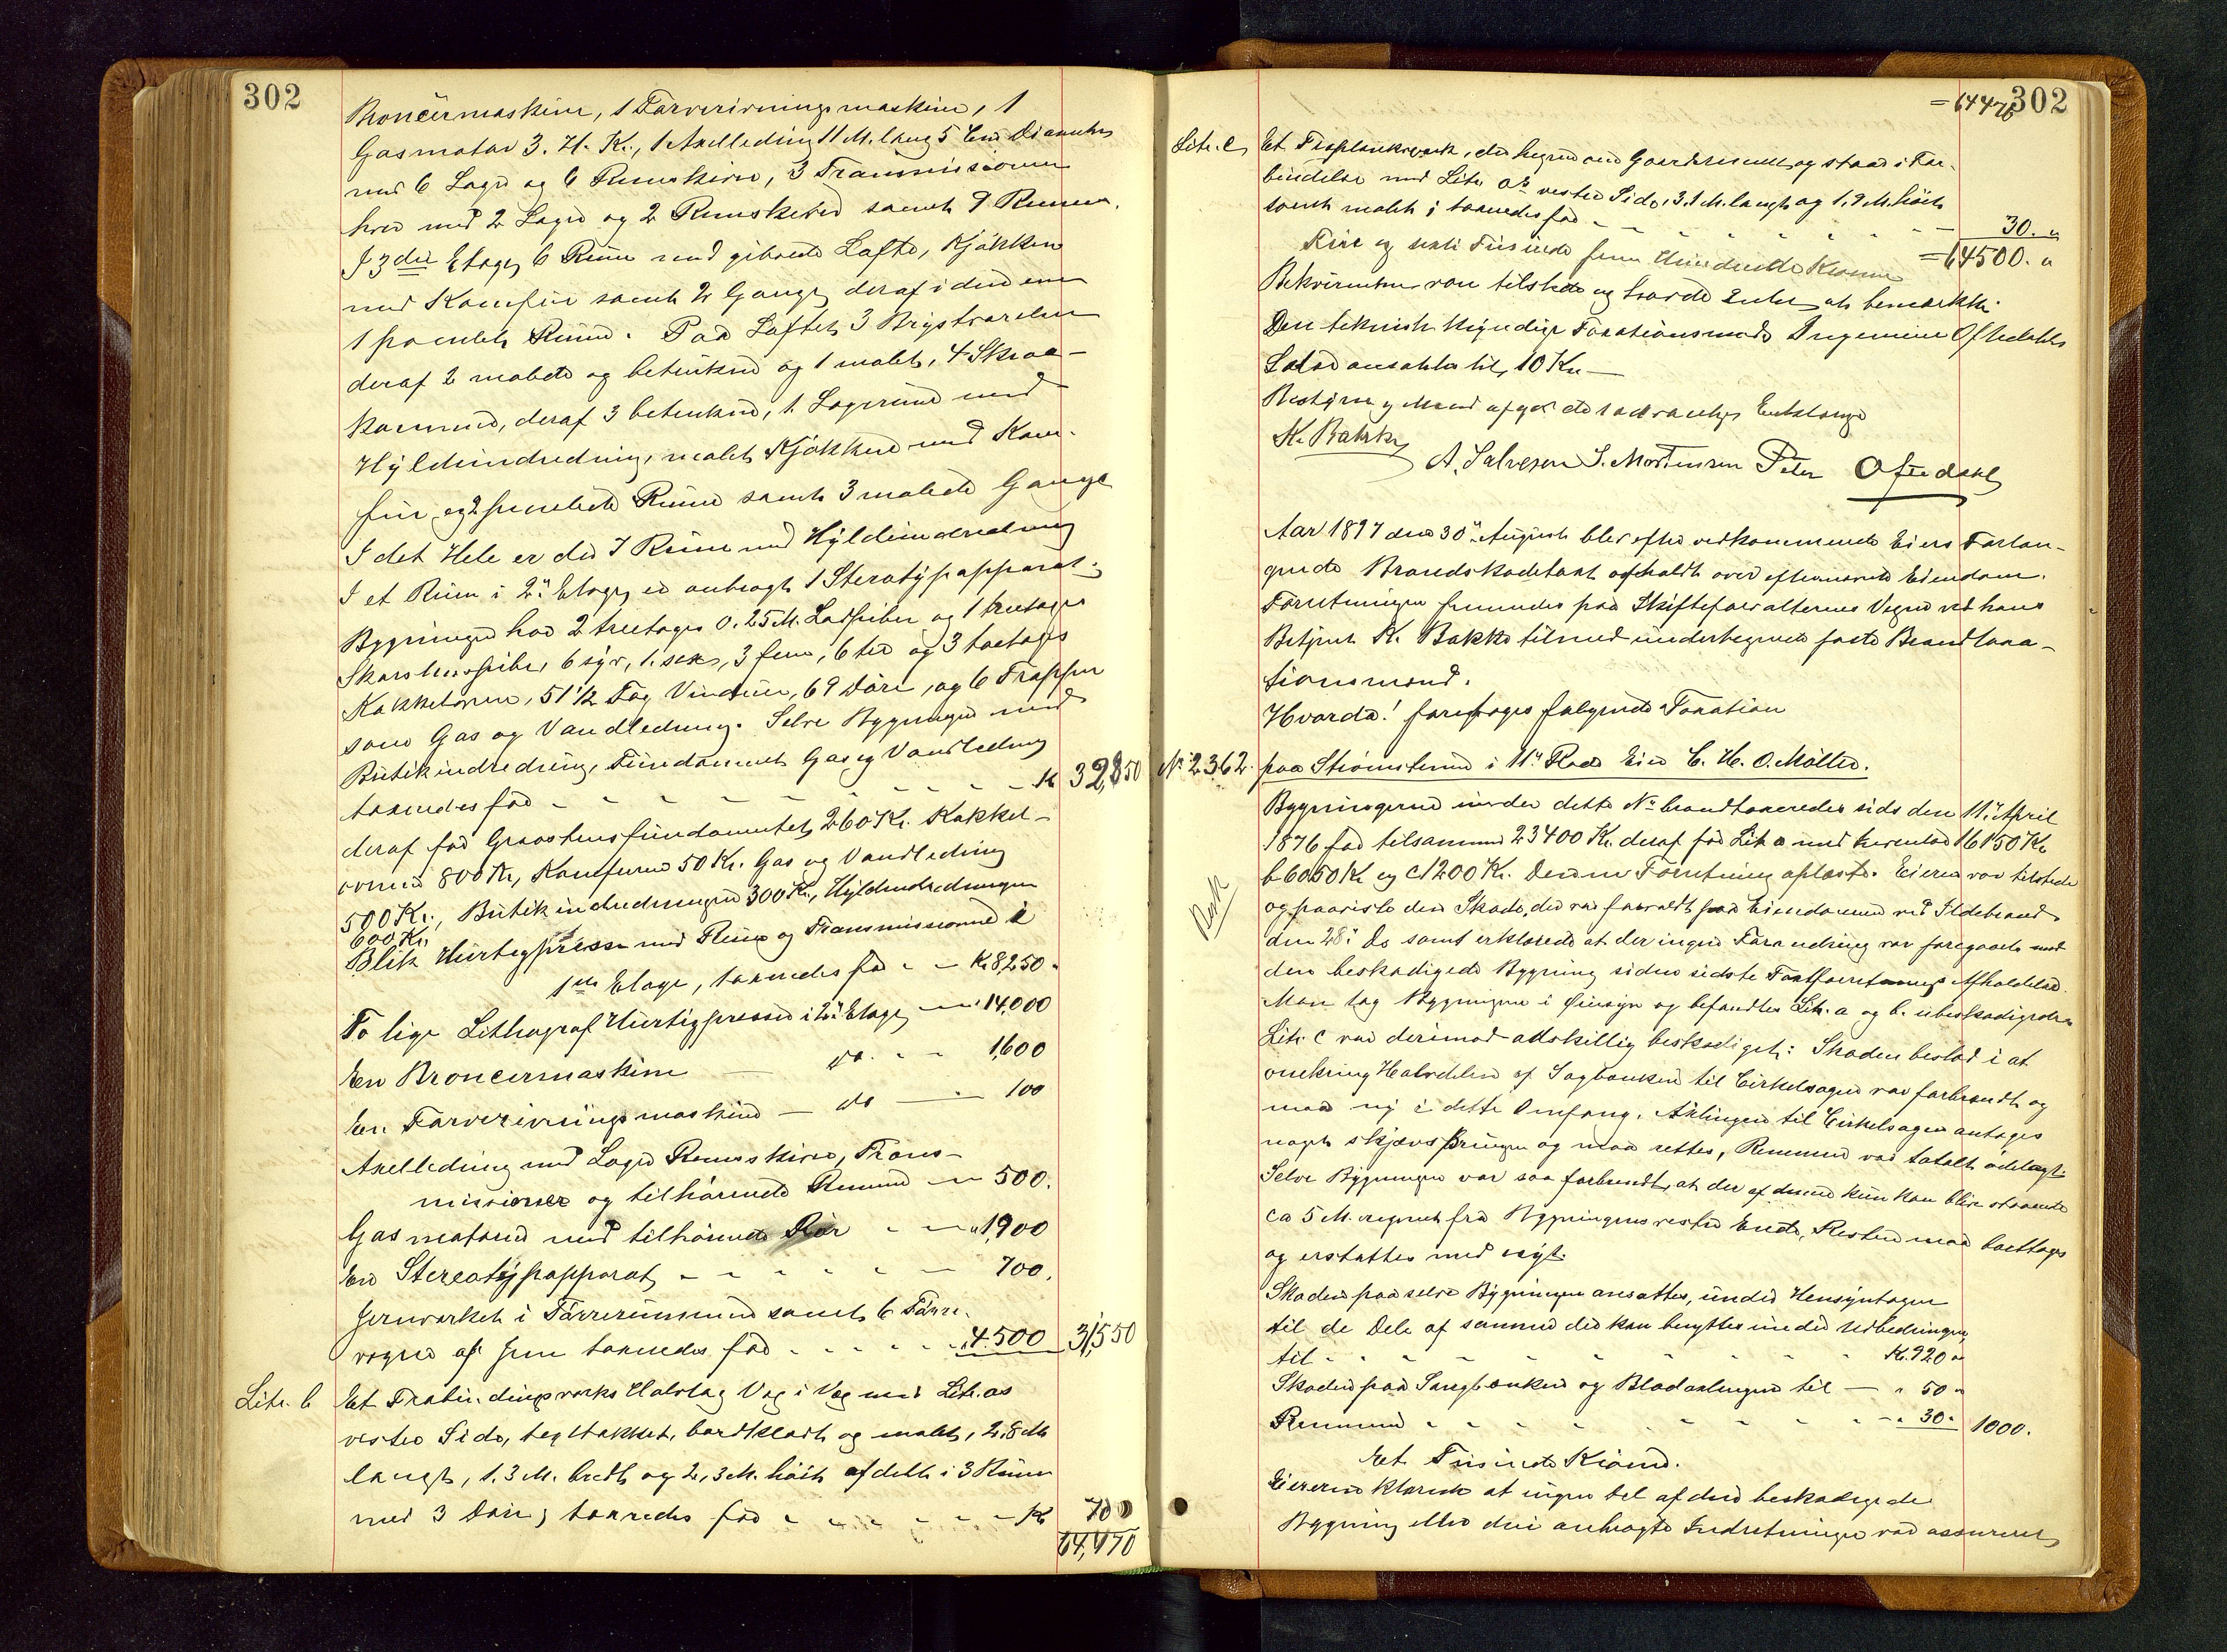 302
Broncermaskine, 1 Farverivningsmaskine, 1
Gasmotor 3. H. K., 1 Axelledning 11 M. lang 5 Cm Diameter
med 6 Lager og 6 Remskiver, 3 Transmissioner
hver med 2 Lager og 2 Remskiver samt 9 Remme.
I 3die Etage, 6 Rum med gibsede Lofte, Kjøkken
med Komfur samt 2 Gange, deraf i den ene
1 panelet Rum. Paa Loftet 3 Bryst
deraf 2 malede og betrukne og 1 malet, 4 Skraa-
kammere, deraf 3 betrukne, 1 Lagerrum med
Hyldeindredning, malet Kjøkken med Kom-
fur og 2 panelede Rum samt 3 malede Gange
I det Hele er der 7 Rum med Hyldeindredning
I et Rum i 2den Etage er anbragt 1 Sterotypapparat.
Bygningen har 2 treetages 0.25 M. Ladpiber og 1 treetages
Skorstenspibe, 6 syv, 1 sex, 3 fem, 6 tre og 3 toetages
Kakkelovne, 51 1/2 Fag Vinduer, 69 Døre, og 6 Trapper
samt Gas og Vandledning. Selve Bygningen med
Butikindredning, Fundament Gas og Vandledning
taxeredes for - - - - - - - Kr 32,850
deraf for Graastensfundamentet 260 Kr. Kakkel-
ovnene 800 Kr, Komfurene 50 Kr. Gas og Vandledning
500 Kr., Butikindredningen 300 Kr., Hyldeindredningen
600 Kr.
Blik Hurtigpresse med Remme og Transmissioner i
1ste Etage, taxeredes for - - Kr. 8,250.
To lige Lithograf Hurtigpresser i 2den Etage — " 14,000
En Broncermaskine — do. - - 1,600
En Farverivningsmaskine — do — 100
Axelledning med Lager Remskiver, Trans-
missioner og tilhørende Remme — " 500.
Gasmotoren med tilhørende Rør - - " 1,900
En Stereotypapparat - - - - - 700.
Jernverket i Tørrerummene samt 6 Tørre-
vogne af Jern taxeredes for - - - - " 4.500 31,550
Litr. b Et Træbindingsverks Halvtag Væg i Væg med Litr. as
vestre Side, tegltækket, bordklædt og malet, 2,8 M
langt, 1.3 M. bredt og 2,3 M. høit afdelt i 3 Rum
med 3 Døre, taxeredes for - - - - - Kr 70
64,470
302
= 64470
Litr. c Et Træplankeværk, der hegner om Gaardsrummet og staar i For-
bindelse med Litr. as vestre Side, 3.1 M. langt og 1.9 M. høit
samt malet; taxeredes for - - - - - - - 30. "
Fire og sexti Tusinde fem Hundrede Kroner = 64500. "
Rekvirenten var tilstede og havde Intet at bemærke.
Den teknisk kyndige Taxationsmands Ingeniør Oftedahls
Salær ansattes til 10 Kr —
Bestyrer og Mænd afgav de lovbefalede
K. Bakke
A. Salvesen S. Mortensen Peter Oftedahl
Aar 1897 den 30te August blev efter vedkommende Eiers Forlan-
gende Brandskadetaxt afholdt over efternævnte Eiendom.
Forretningen fremmedes paa Skifteforvalterens Vegne ved hans
Betjent K. Bakke tilmed undertegnede faste Brandtaxa-
tionsmænd.
Hvorda! foretoges følgende Taxation
No. 2362. paa Strømsteen i 11te Rode Eier C. H. O. Møller.
Bygningerne under dette No brandtaxeredes sidst den 11te April
1876 for tilsammen 23400 Kr. deraf for Litr a med Inventar 16150 Kr
b 6050 Kr og c 1200 Kr. Denne Forretning oplæstes. Eieren var tilstede
og paaviste den Skade, der var forvoldt paa Eiendommen ved Ildebrand
den 28de ds samt erklærede at der ingen Forandring var foregaaet med
den beskadigede Bygning siden sidste Taxtforretnings Afholdelse.
Man tog Bygningerne i Øiesyn og befandtes Litr. a og b. ubeskadigede.
Litr. c var derimod adskillig beskadiget: Skaden bestod i at
omkring Halvdelen af Sagbænken til Cirkelsagen var forbrændt og
maa ny i dette Omfang. Axlingen til Cirkelsagen antages
noget skjævsprungen og maa rettes, Remmene var totalt ødelagt.
Selve Bygningen var saa forbrændt, at der af denne kun kan blive staaende
ca 5 M. regnet fra Bygningens vestre Ende, Resten maa borttages
og erstattes med nyt.
Skaden paa selve Bygningen ansattes, under Hensyntagen
til de Dele af samme der kan benyttes under Udbedringen,
til - - - - - - - - Kr. 920 "
Skaden paa Saugbænken og Bladaxlingen til — " 50 "
Remmene - - - - - - - " 30. 1000.
Et Tusinde Kroner.
Eieren erklærede at ingen Del af den beskadigede
Bygning eller den anbragte Indretninger var assureret